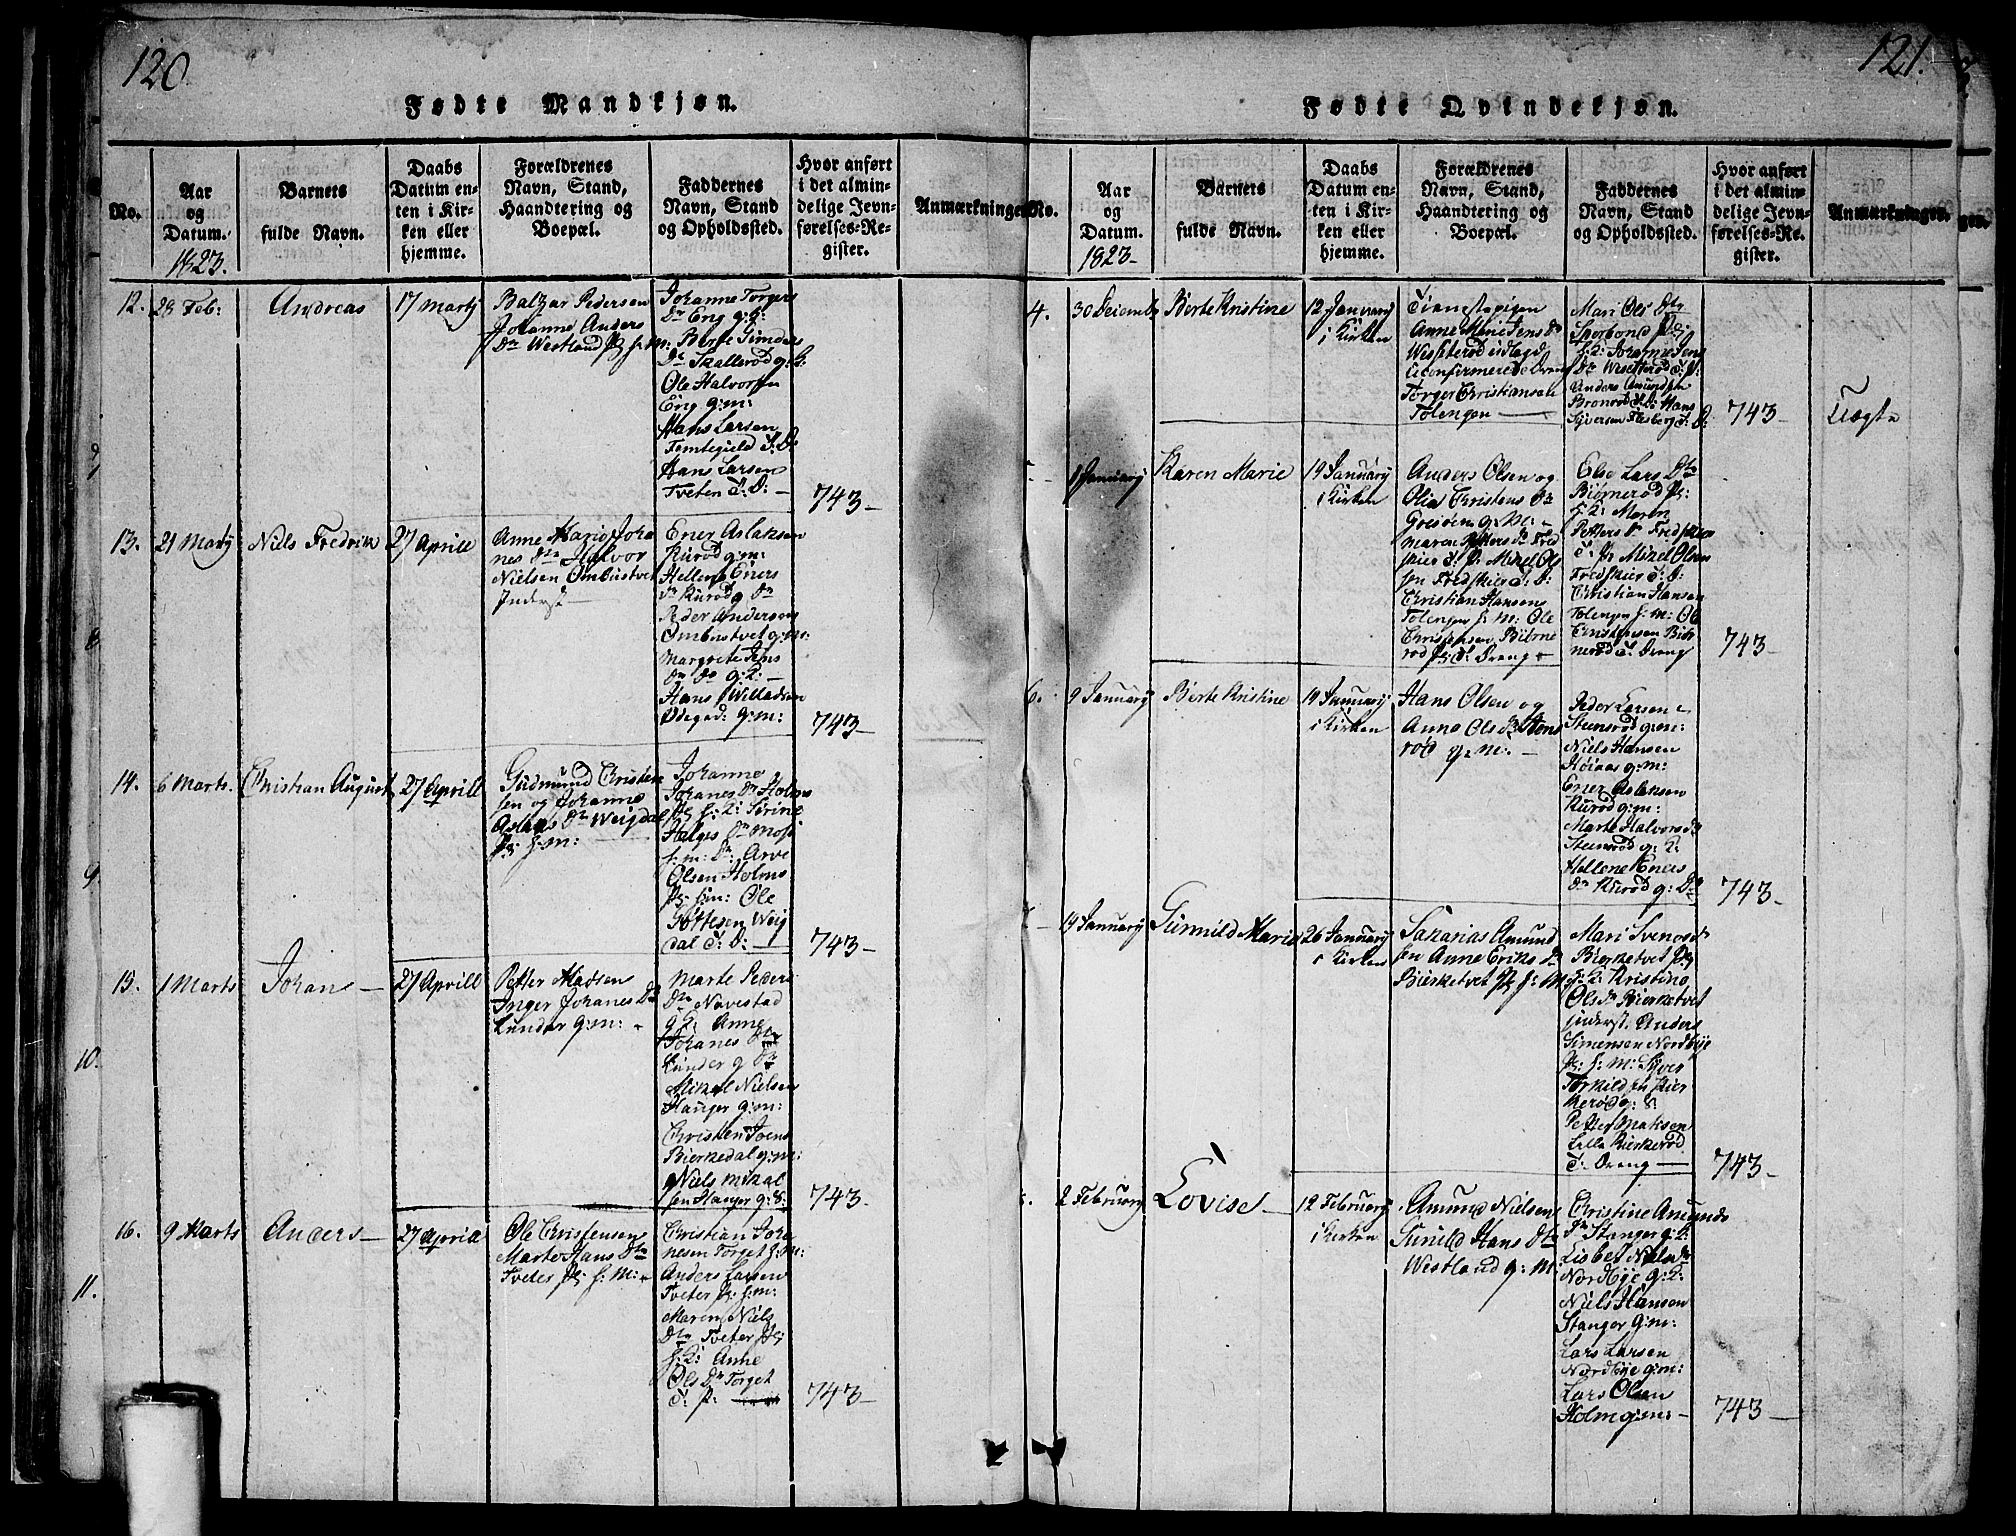 120
Fødte Mandkjøn.
No.
Aar
og
Datum.
1823.
Barnets
fulde Navn.
Daabs
Datum en-
ten i Kir-
ken eller
hjemme.
Forældrenes
Navn, Stand,
Haandtering og
Boepæl.
Faddernes
Navn, Stand
og Opholdssted.
Hvor anført
i det almin-
delige Jevn-
førelses-Re-
gister.
Anmærkninger.
12.
28 Feb:
Andreas
17 Martj
Baltzar Pedersen
Johanne Anders
Dr Westlund pl: h: M:
Johanne Torgers
Dr Eng g: q:
Berte Simders
Dr Skallerød g: q:
Ole Halvorsen
Eng g: m:
Hans Larsen
Femtegield T: D:
Hans Larsen
Tveten T: D: –
743 –
13.
21 Martj
Niels Fredrik
27 Aprill
Anne Marie Joha
nes Dtr Halvor
Nielsen Ombustvet
Inderst –
Ener Aslaksen
Kurød g: m:
Hellene Eners
Dr Kurød g Dr
Peder Anderson
Ombustvet g: m:
Margrete Jens
Dr Do g: q: –
Hans Willadsen
Ødegad: g: m:
743 –
14.
6 Marts.
Christian August
27 Aprill
Gudmund Christen
sen og Johanne
Aslags Dr Weigdal
pl: h: m: –
Johanne
Johanes Dr Holms
pl: h: q: Sirine
Helges Dr Moss
h: m: Dr. Arve
Olsen Holms
pl: h: m: Ole
Gottesen Weig
dal T: D: –
743 –
15.
1 Marts
Johan –
27 Aprill
Petter Madsen
Inger Johanes Dr
Lunder g: m: –
Marte Peders
Dr Navestad
g: q: Anne
Johanes Dr
Lunder g Dr
Mikel Nielsen
Hauger g: m:
Christen Joens
Bierkedal g: m:
Niels Mikal
sen Hauger g: S:
743 –
16.
9 Marts
Anders –
27 Aprill
Ole Christensen
Marte Hans Dtr
Tveter pl: h: M: –
Christian Joha
nesen Torget h: m:
Anders Larsen
Tveter pl: h: m:
Maren Niels
Dtr Tveter pl:
h: q: Anne
Ols Dr Torget
T: p: –
743 –
121.
Fødte Qvindekjøn.
No.
Aar
og
Datum.
1823.
Barnets
fulde Navn.
Daabs
Datum en-
ten i Kir-
ken eller
hjemme.
Forældrenes
Navn, Stand,
Haandtering og
Boepæl.
Faddernes
Navn, Stand
og Opholdssted.
Hvor anført
i det almin-
delige Jevn-
førelses-Re-
gister.
Anmærkninger.
4.
30 Decemb:
Berte Kristine
12 Januarj
i Kirken
Tienestepigen
Anne Marie Jens Dr
Wisseterød udlagd
Ukonfirmerede Dreng
Torger Christiansen
Tolengen –
Mari Ols Dtr
Sporbond pl:
h: q: Johanne Jens
Dr Wisetterød T: P:
Anders Amundsen
Bronrød T: D: Hans
Syversen Flesberg T: D:
743 –
Uægte
1 Januarj
Karen Marie
19 Januarj
i Kirken
Anders Olsen og
Olia Christens Dr
Gresøen g: M: –
Maren Petters Dr Fred
skier T: P: Mikel Ol
sen Fredskier T: D:
Christian Hansens
Tolengen h: M: Ole
Christensen Biørne
rød pl: T: Dreng –
Else Lars Dtr
Biørnerød pl:
h: q: Maren
Petters Dr Fredskier
T: P: Mikel Olsen
Fredskier T: D:
Christian Hansen
Tolengen h: M: Ole
Christensen Biør
nerød T: Dreng
743 –
6.
9 Januarj
Berte Kristine
19 Januarj
i Kirken
Hans Olsen og
Anne Ols Dr Stens
rød g: M: –
Peder Larsen
Steensrød g: m:
Niels Hansen
Høiaas g: m:
Ener Aslaksen
Kurød g: m:
Marte Halvors Dr
Steensrød g: q:
Hellene Eners
Dr Kurød g: Dr
743 –
19 Januarj
Gunnild Marie
26 Januarj
i Kirken
Sakarias Amund
sen Anne Eriks Dr
Bierketvet pl: h: M:
Mari Svens Dr
Bierketvet pl:
h: q: Kristine
Ols Dr Bierketvet
Inderst. Anders
Simensen Nordbye
pl: h: M: Syver
Torkildsen Kier
nerød g: S:
Petter Maksen
Lille Bierkerød
T: Dreng –
743 –
2 Februarj
Lovise –
12 Februarj
i Kirken
Amund Nielsen
Gunild Hans Dtr
Westlund g: M:
Christine Amunds
Dr Stanger g: q:
Lisbet Niels Dr
Nordbye g: q:
Niels Hansen
Stanger g: m:
Lars Larsen
Nordbye g: m:
Lars Olsen
Holm g: m: –
743 –
8
9.
10.
11.